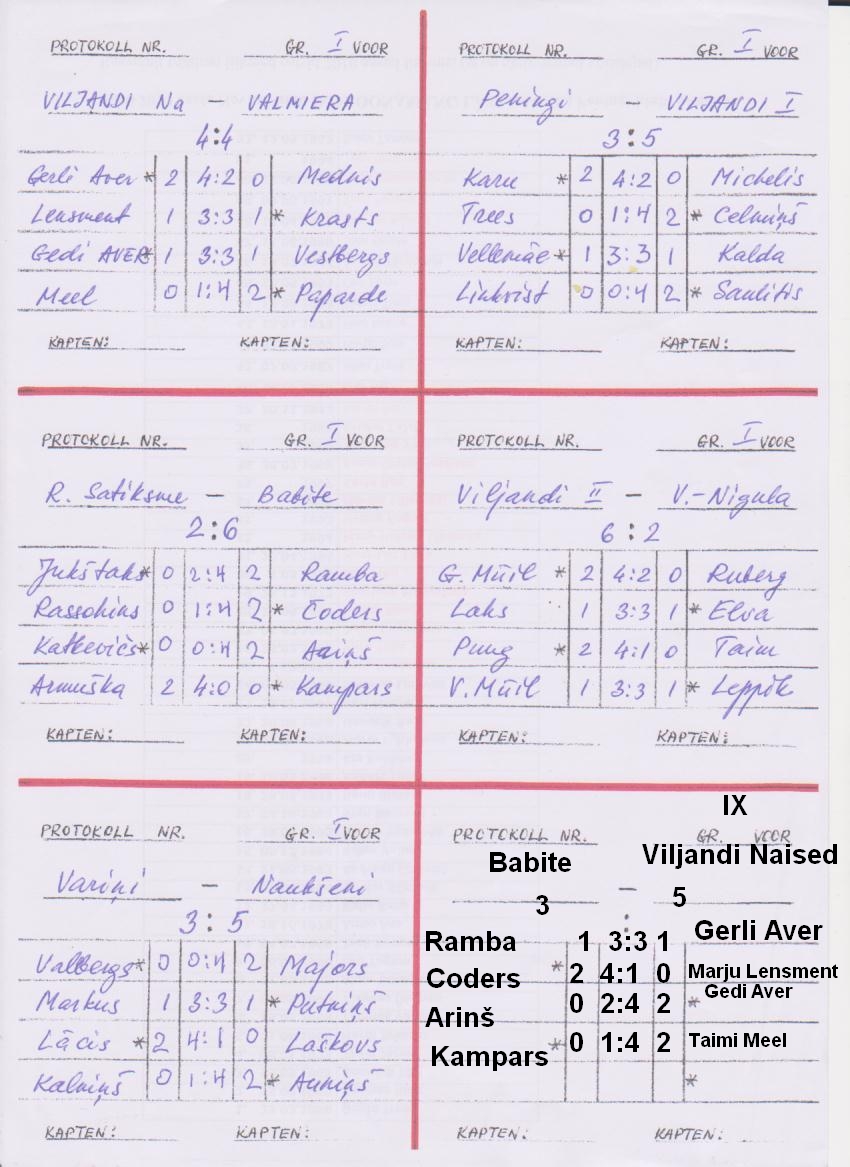 PROTOKOLL NR. GR. I VOOR
VILJANDI Na - VALMIERA
4:4
Gerli Aver * 2 4:2 0 Mednis
Lensment 1 3:3 1 * Krasts
Gedi AVER * 1 3:3 1 Vestbergs
Meel 0 1:4 2 * Paparde
KAPTEN: KAPTEN:
PROTOKOLL NR. GR. I VOOR
Peningi - VILJANDI I
3:5
Karu * 2 4:2 0 Michelis
Trees 0 1:4 2 * Celmiņš
Vellemäe * 1 3:3 1 Kalda
Linkvist 0 0:4 2 * Saulitis
KAPTEN: KAPTEN:
PROTOKOLL NR. GR. I VOOR
R. Satiksme - Babite
2:6
Jukštaks * 0 2:4 2 Ramba
Rassohins 0 1:4 2 * Čoders
Katkevičs * 0 0:4 2 Ariņš
Armuška 2 4:0 0 * Kampars
KAPTEN: KAPTEN:
PROTOKOLL NR. GR. I VOOR
Viljandi II - V.-Nigula
6:2
G. Müil * 2 4:2 0 Ruberg
Laks 1 3:3 1 * Elva
Pung * 2 4:1 0 Taim
V. Müil 1 3:3 1 * Leppik
KAPTEN: KAPTEN:
PROTOKOLL NR. GR. I VOOR
Variņi - Naukšeni
3:5
Valbergs * 0 0:4 2 Majors
Markus 1 3:3 1 * Putniņš
Lācis * 2 4:1 0 Laškovs
Kalniņš 0 1:4 2 * Auniņš
KAPTEN: KAPTEN:
IX
PROTOKOLL NR. GR. VOOR
Babite - Viljandi Naised
3 : 5
Ramba 1 3:3 1 Gerli Aver
Coders * 2 4:1 0 Marju Lensment
Arinš 0 2:4 2 * Gedi Aver
Kampars * 0 1:4 2 Taimi Meel
*
KAPTEN: KAPTEN: